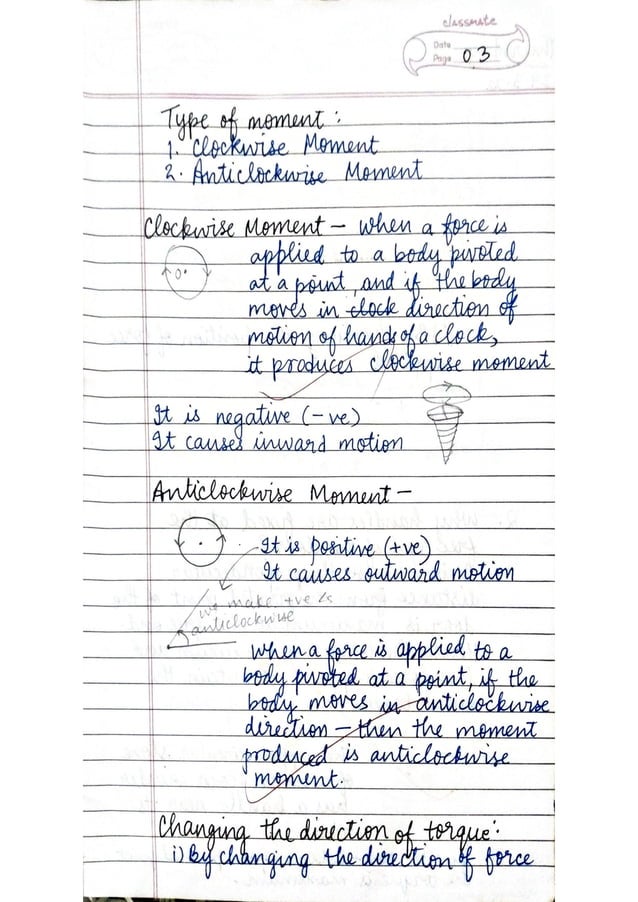 classmate
Date
Page 03
Type of moment :
1. Clockwise Moment
2. Anticlockwise Moment
Clockwise Moment – when a force is
applied to a body pivoted
at a point, and if the body
moves in clock direction of
motion of hands of a clock,
it produces clockwise moment
It is negative (-ve)
It causes inward motion
Anticlockwise Moment –
It is positive (+ve)
It causes outward motion
we make +ve
anticlockwise
when a force is applied to a
body pivoted at a point, if the
body moves in anticlockwise
direction – then the moment
produced is anticlockwise
moment.
Changing the direction of torque:
i) By changing the direction of force